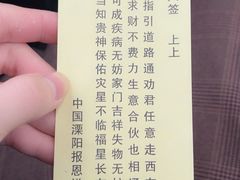 签 上上
指引道路通劝君任意走西
求财不费力生意合伙也相
可成疾病无妨家门吉祥失物无
当知贵神保佑灾星不临福星长
中国溧阳报恩